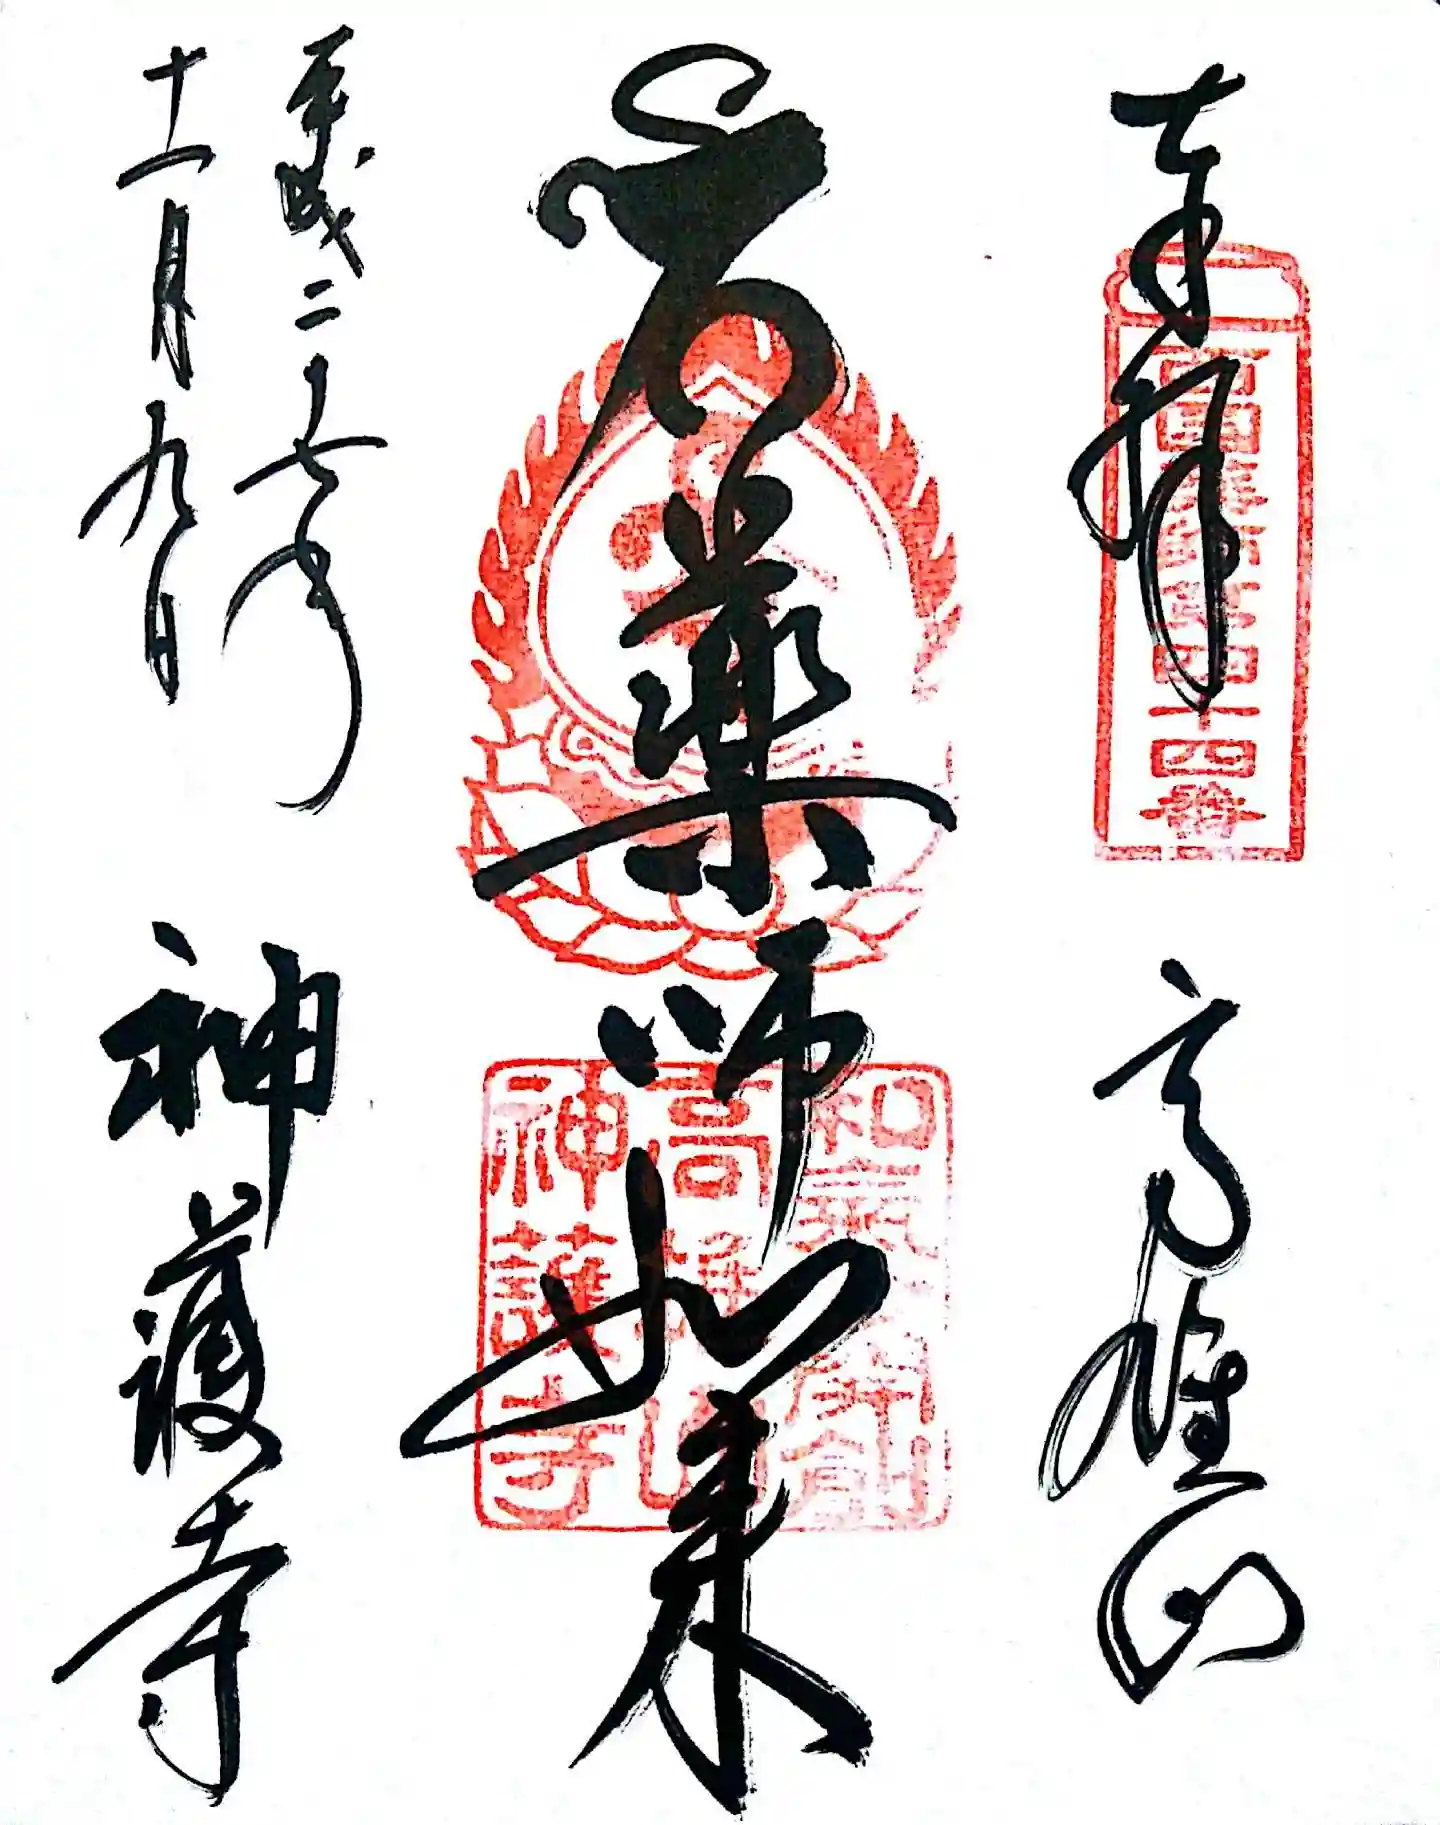 奉拝
西国薬師第四十四番
高雄山
薬師如来
高雄山
神護寺
平成二十七年
十一月九日
神護寺